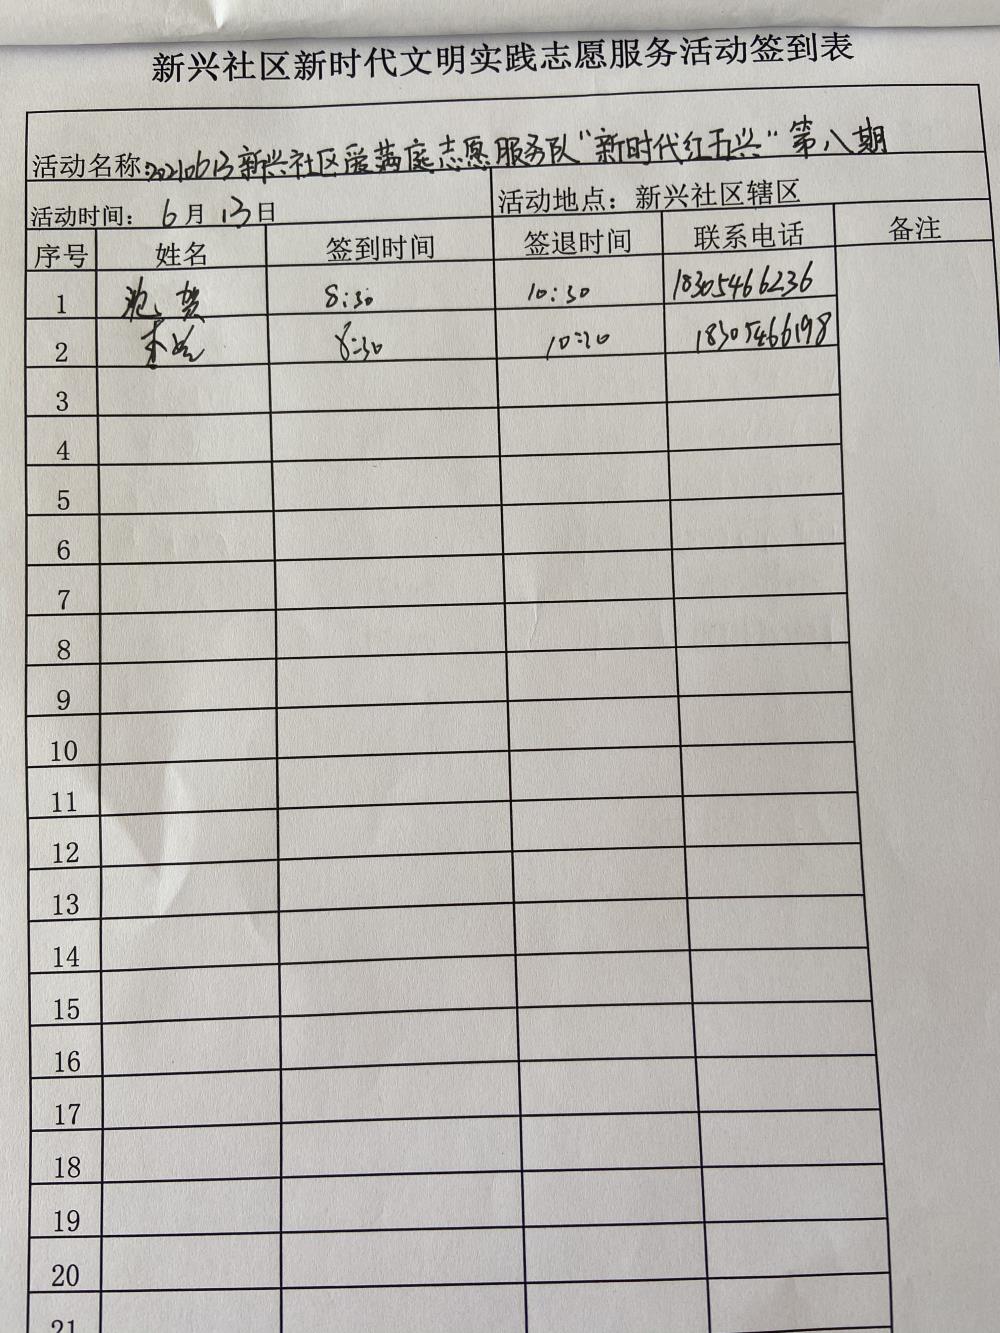 新兴社区新时代文明实践志愿服务活动签到表
活动名称:20210613新兴社区爱满庭志愿服务队"新时代红五兴"第八期
活动时间: 6月13日 活动地点: 新兴社区辖区
序号 姓名 签到时间 签退时间 联系电话 备注
1 8:30 10:30 18305466236
2 8:30 10:30 18305466198
3
4
5
6
7
8
9
10
11
12
13
14
15
16
17
18
19
20
21